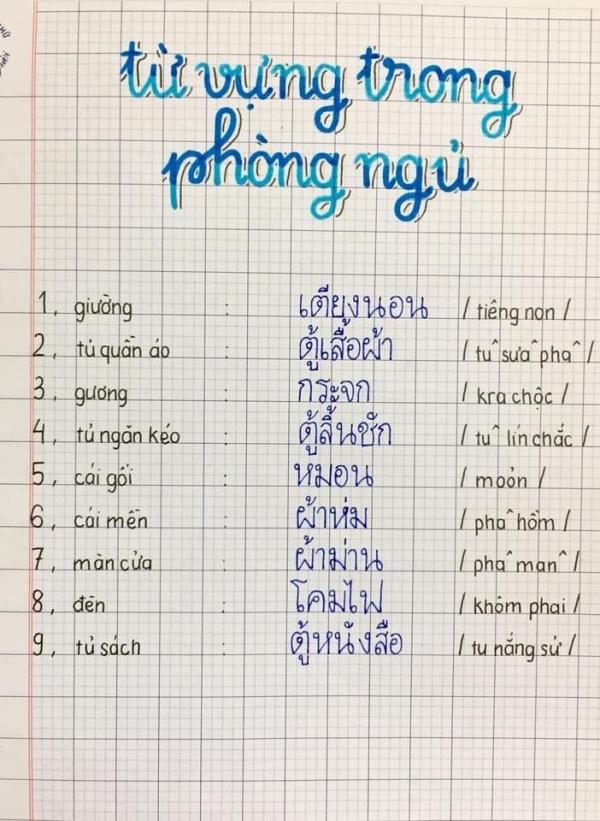 từ vựng trong
phòng ngủ
1, giường : เตียงนอน / tiêng non /
2, tủ quần áo : ตู้เสื้อผ้า / tuˆ sưaˆ phaˆ /
3, gương : กระจก / kra chộc /
4, tủ ngăn kéo : ตู้ลิ้นชัก / tuˆ lín chắc /
5, cái gối : หมอน / moỏn /
6, cái mền : ผ้าห่ม / phaˆ hồm /
7, màn cửa : ผ้าม่าน / phaˆ manˆ /
8, đèn : โคมไฟ / khôm phai /
9, tủ sách : ตู้หนังสือ / tu nắng sử /